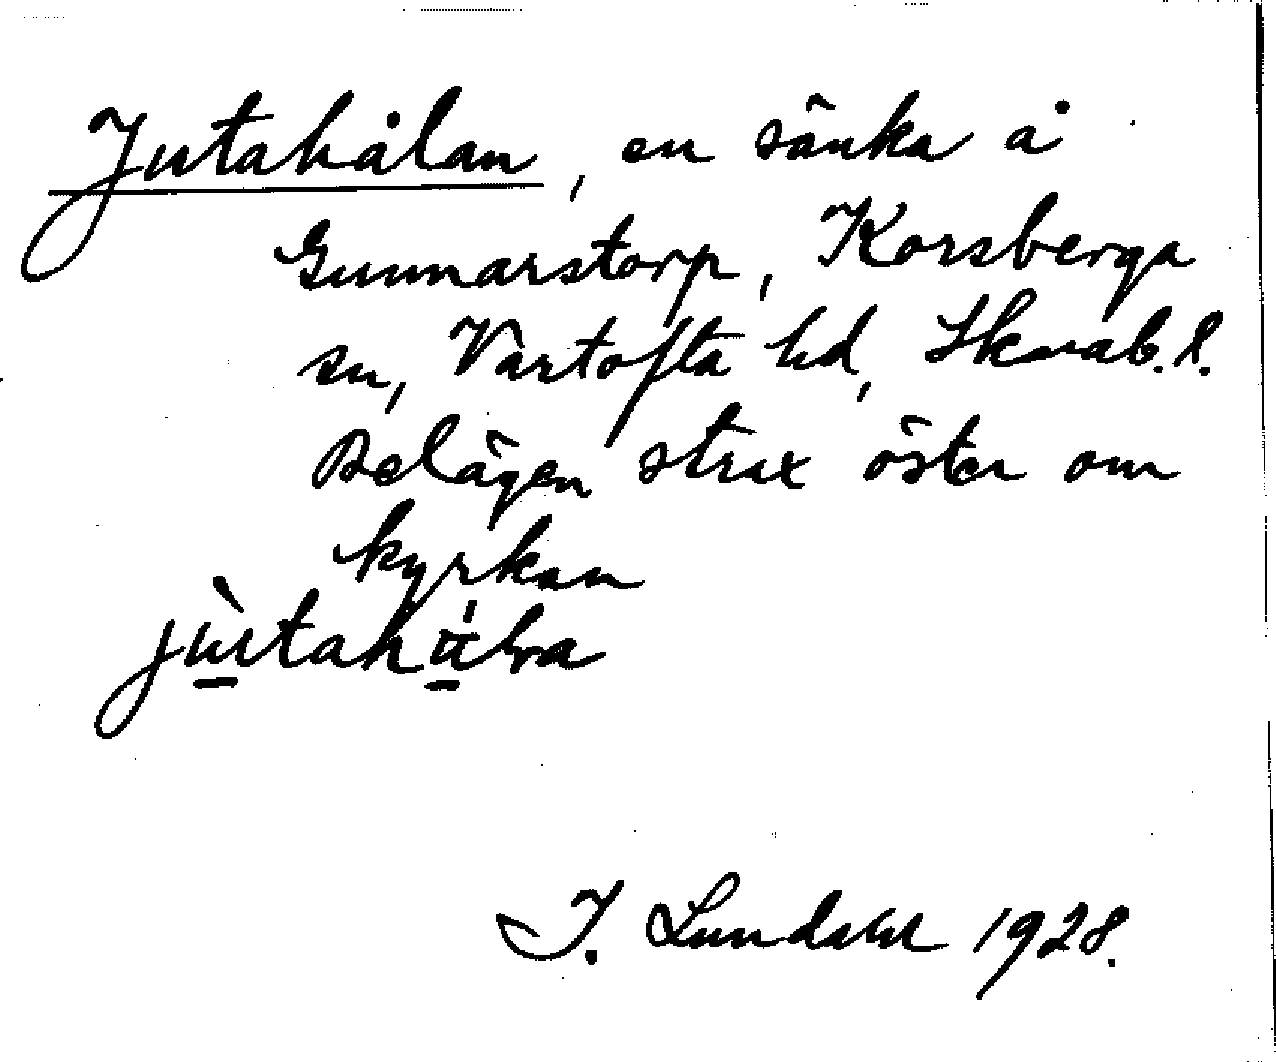 Jutahålan, en sänka å
Gunnarstorp, Korsberga
sn, Vartofta hd, Skarab. l.
Belägen strax öster om
kyrkan
I. Lundahl 1928.